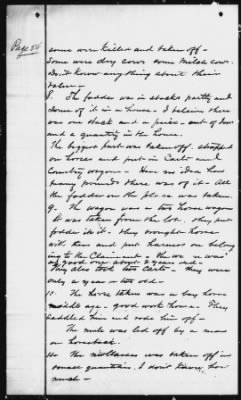 Page 56
some were killed and taken off -
Some were dry cows some milch cows.
Don't know anything about their
value -
8. The fodder was in stacks partly and
some of it in a house. I believe there
was one stack and a piece - out of door
and a quantity in the house.
The biggest part was taken off. strapped
on horses and put in Carts and
Country wagon - Have no idea how
many pounds there was of it - All
the fodder on the place was taken.
9. The wagon was a two horse wagon
It was taken from the lot. they put
fodder in it. They brought horse
with them and put harness on belong
ing to the Claimant - the wagon was a
good one about 2 year old -
They also took two Carts - they were
only a year or two old -
10 The horse taken was a bay horse
middle age - good work horse. They
saddled him and rode him off -
The mule was led off by a man
on horseback.
The molasses was taken off in
small quantities. I don't know how
much -